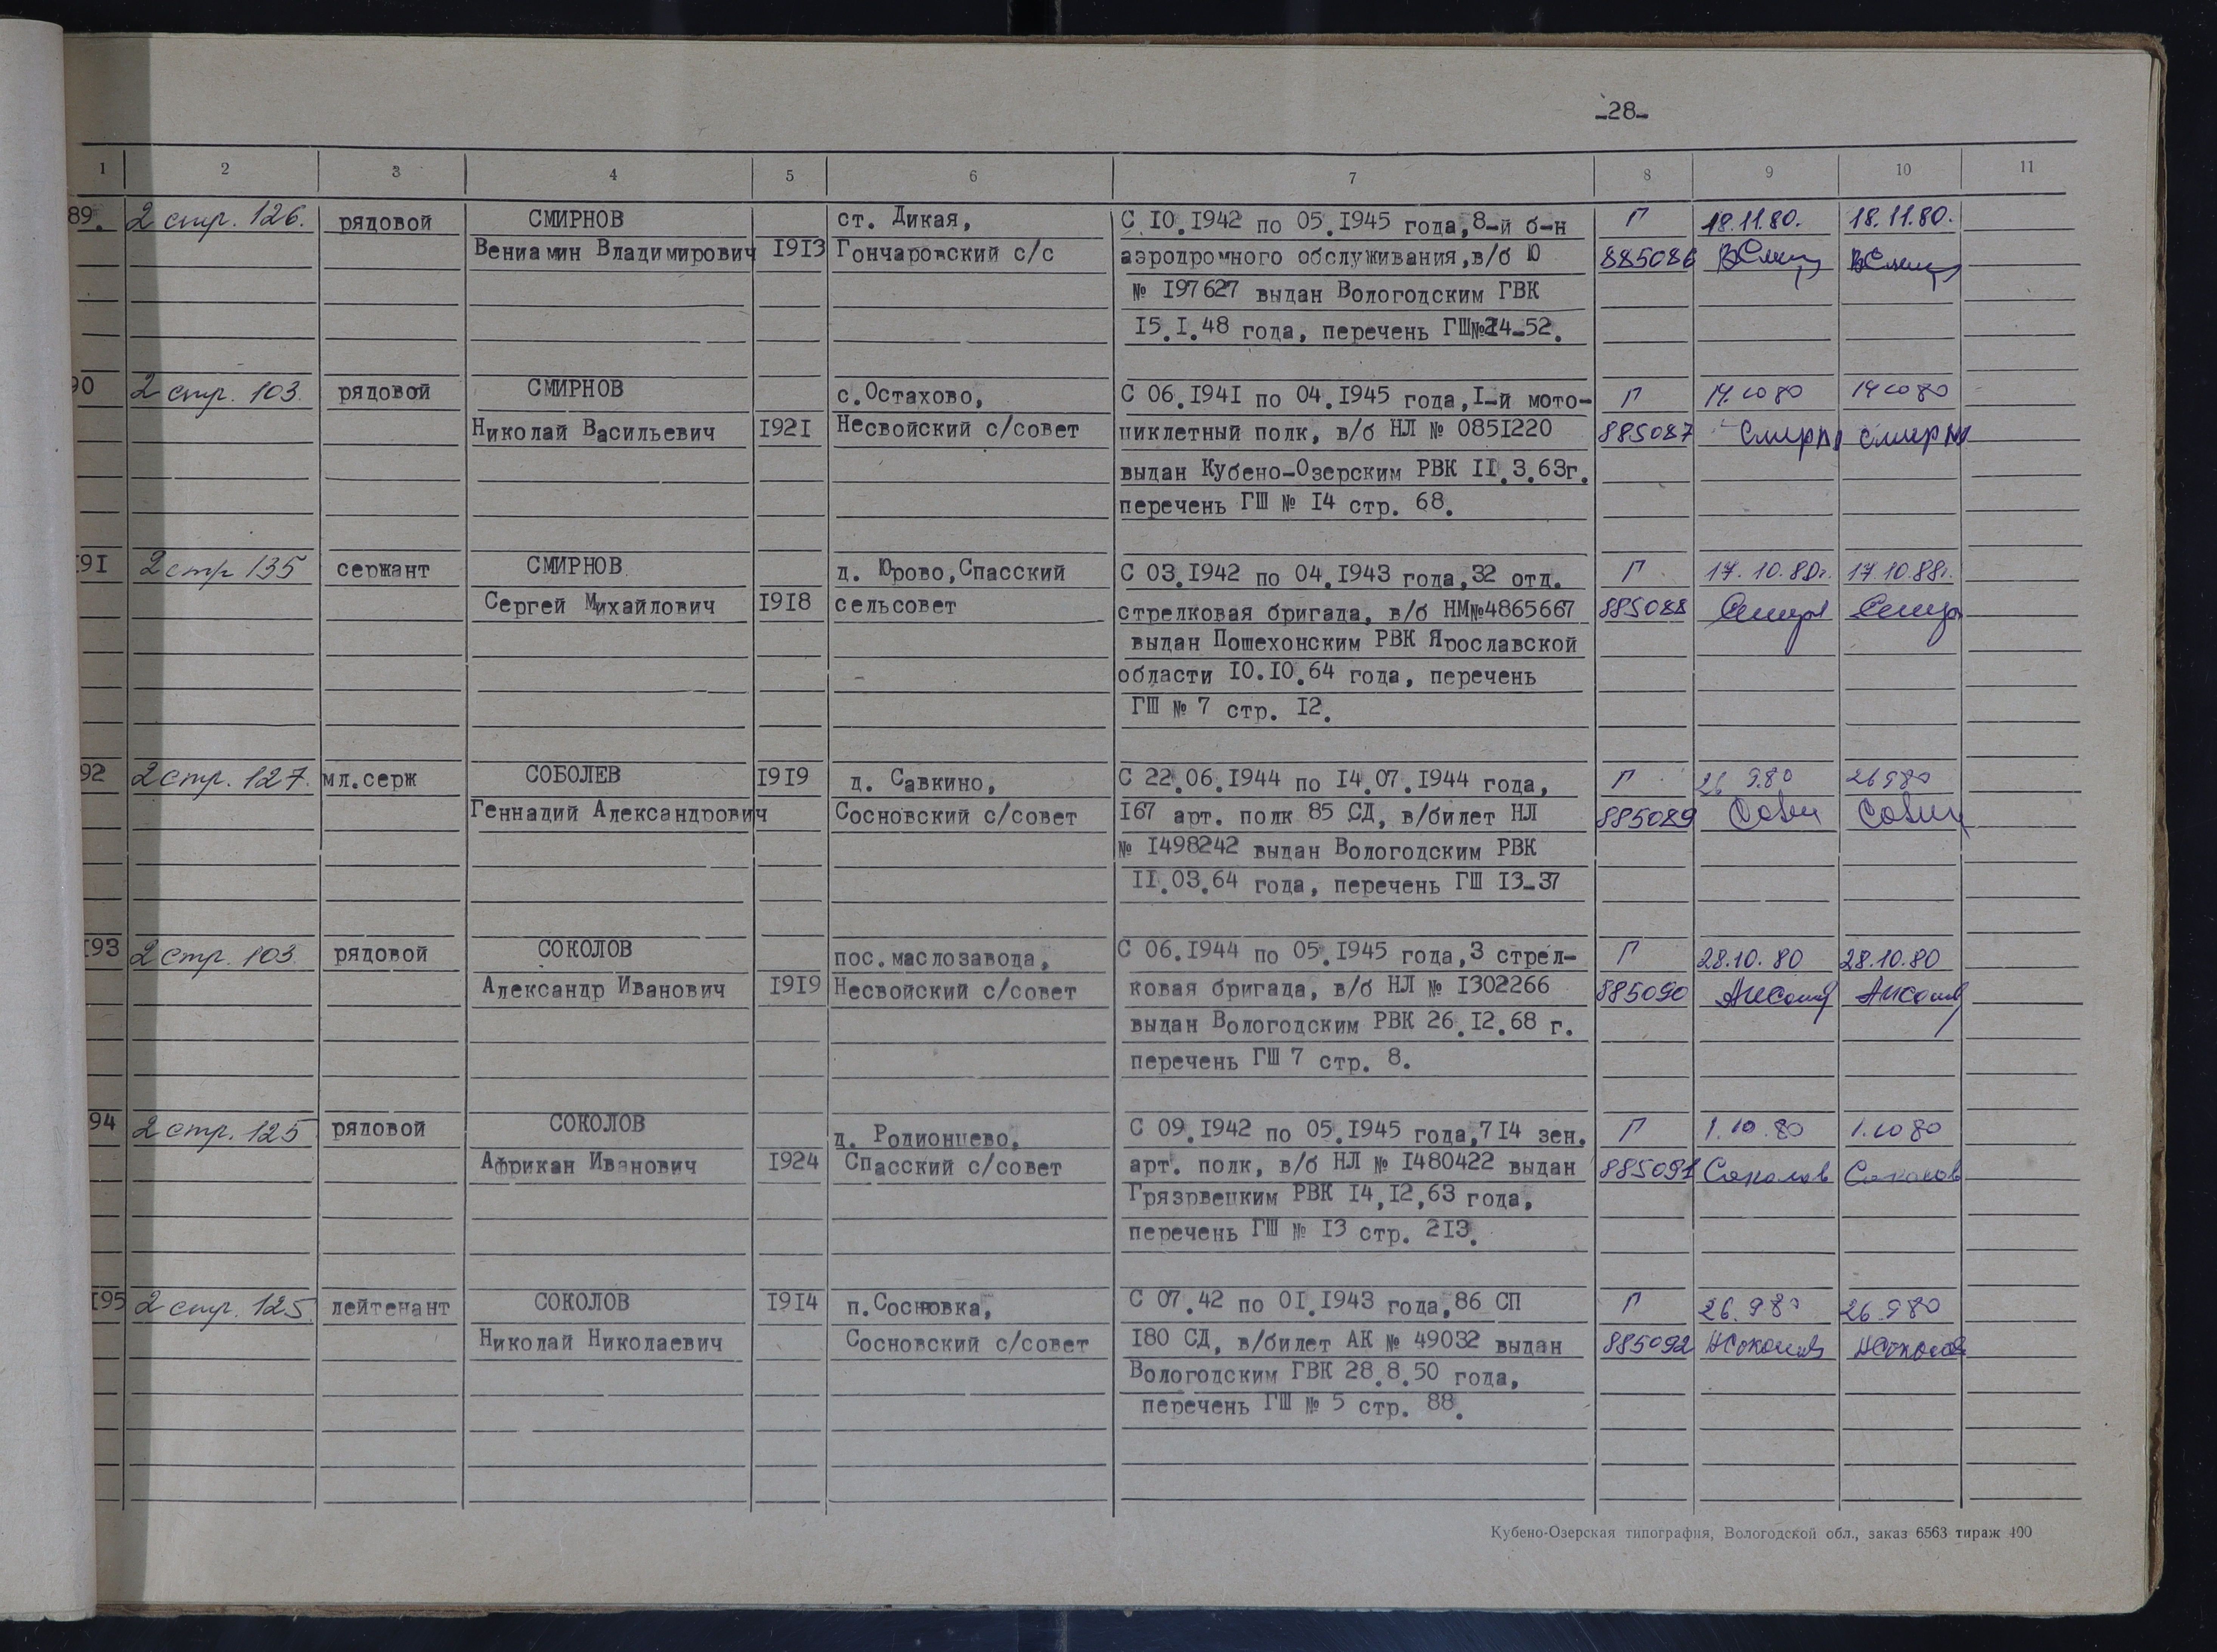 -28-
1 2 3 4 5 6 7 8 9 10 11
89. 2 стр. 126. рядовой СМИРНОВ ст. Дикая, С 10.1942 по 05.1945 года,8-й б-н Г 18.11.80. 18.11.80.
Вениамин Владимирович 1913 Гончаровский с/с аэродромного обслуживания,в/б Ю 885086
№ 197627 выдан Вологодским ГВК
15.1.48 года, перечень ГШ№24-52.
90 2 стр. 103. рядовой СМИРНОВ с.Остахово, С 06.1941 по 04.1945 года,1-й мото- Г 14.10 80 14 10 80
Николай Васильевич 1921 Несвойский с/совет циклетный полк, в/б НЛ № 0851220 885087
выдан Кубено-Озерским РВК 11.3.63г.
перечень ГШ № 14 стр. 68.
191 2 стр 135 сержант СМИРНОВ д. Юрово,Спасский С 03.1942 по 04.1943 года,32 отд. Г 17.10.80г. 17.10.88г.
Сергей Михайлович 1918 сельсовет стрелковая бригада, в/б НМ№4865667 885088
выдан Пошехонским РВК Ярославской
области 10.10.64 года, перечень
ГШ № 7 стр. 12.
92 2 стр. 127. мл.серж СОБОЛЕВ 1919 д. Савкино, С 22.06.1944 по 14.07.1944 года, Г 26 9.80 26 9 80
Геннадий Александрович Сосновский с/совет 167 арт. полк 85 СД, в/билет НЛ 885089
№ 1498242 выдан Вологодским РВК
11.03.64 года, перечень ГШ 13-37
193 2 стр. 103. рядовой СОКОЛОВ пос.маслозавода, С 06.1944 по 05.1945 года,3 стрел- Г 28.10.80 28.10.80
Александр Иванович 1919 Несвойский с/совет ковая бригада, в/б НЛ № 1302266 885090
выдан Вологодским РВК 26.12.68 г.
перечень ГШ 7 стр. 8.
94 2 стр. 125 рядовой СОКОЛОВ д. Родионцево, С 09.1942 по 05.1945 года,714 зен. Г 1.10.80 1.10 80
Африкан Иванович 1924 Спасский с/совет арт. полк, в/б НЛ № 1480422 выдан 885091 Соколов Соколов
Грязрвецким РВК 14,12,63 года,
перечень ГШ № 13 стр. 213.
195 2 стр. 125. лейтенант СОКОЛОВ 1914 п.Сосновка, С 07.42 по 01.1943 года,86 СП Г 26.9 80 26.9 80
Николай Николаевич Сосновский с/совет 180 СД, в/билет АК № 49032 выдан 885092 НСоколов НСоколов
Вологодским ГВК 28.8.50 года,
перечень ГШ № 5 стр. 88.
Кубено-Озерская типография, Вологодской обл., заказ 6563 тираж 400